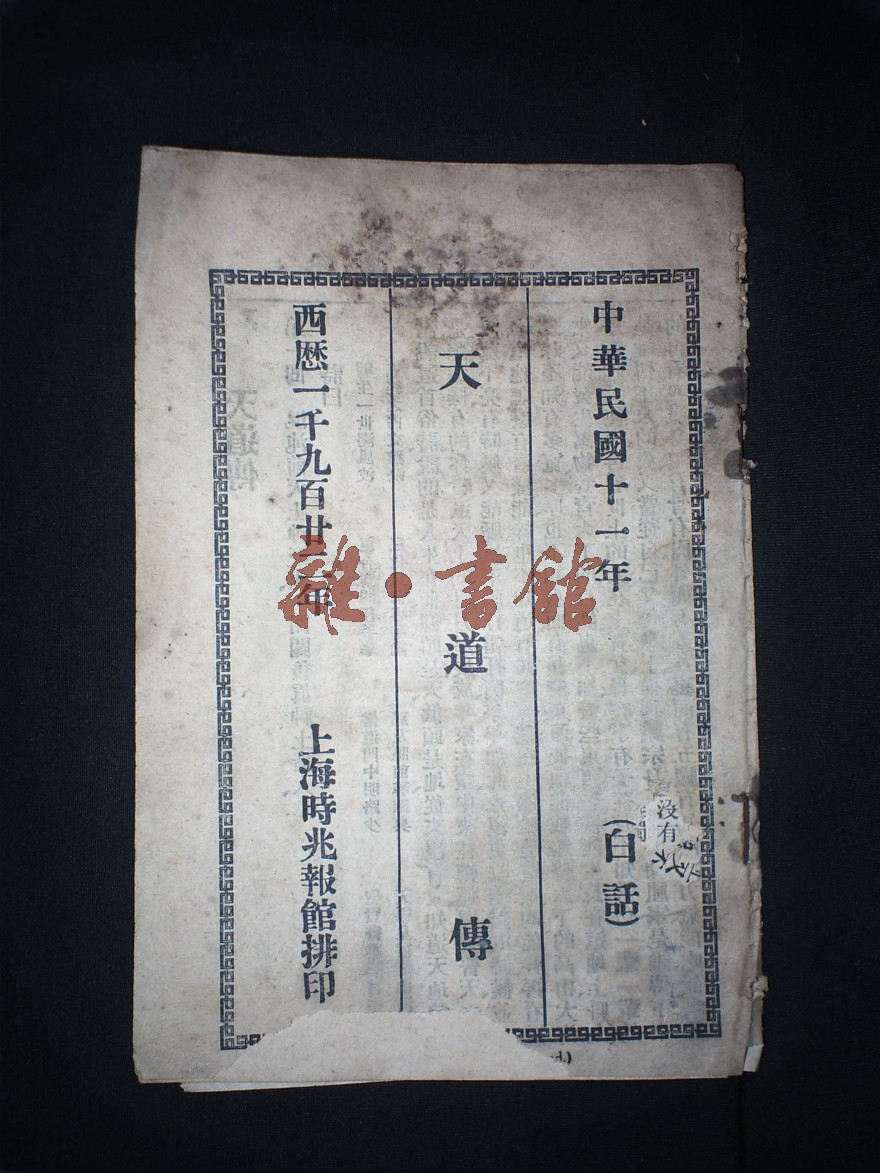 中華民國十一年
(白話)
天道傳
西曆一千九百廿二年
上海時兆報館排印
没有
雜·書館